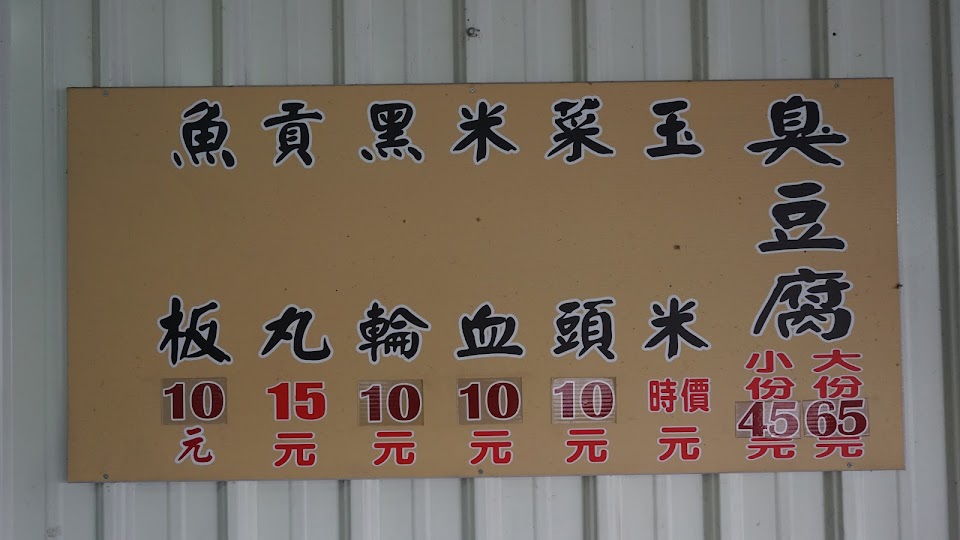 臭豆腐
大份65元
小份45元
玉米
時價元
菜頭
10元
米血
10元
黑輪
10元
貢丸
15元
魚板
10元